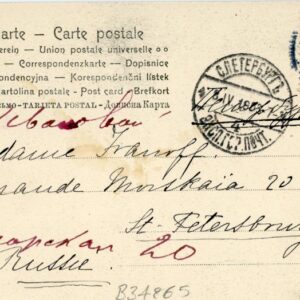 arte – Carte postale
erein – Union postale universelle
– Correspondenzkarte – Dopisnice
ondencyjna – Korespondenční lístek
artolina postale – Brefkort
– TARJETA POSTAL – Дописна Карта
– Post card –
С.ПЕТЕРБУРГЪ
Ивановой
adame Ivanoff.
ande Morskaia 20
St. Petersbour
орская 20
Russie
B34865